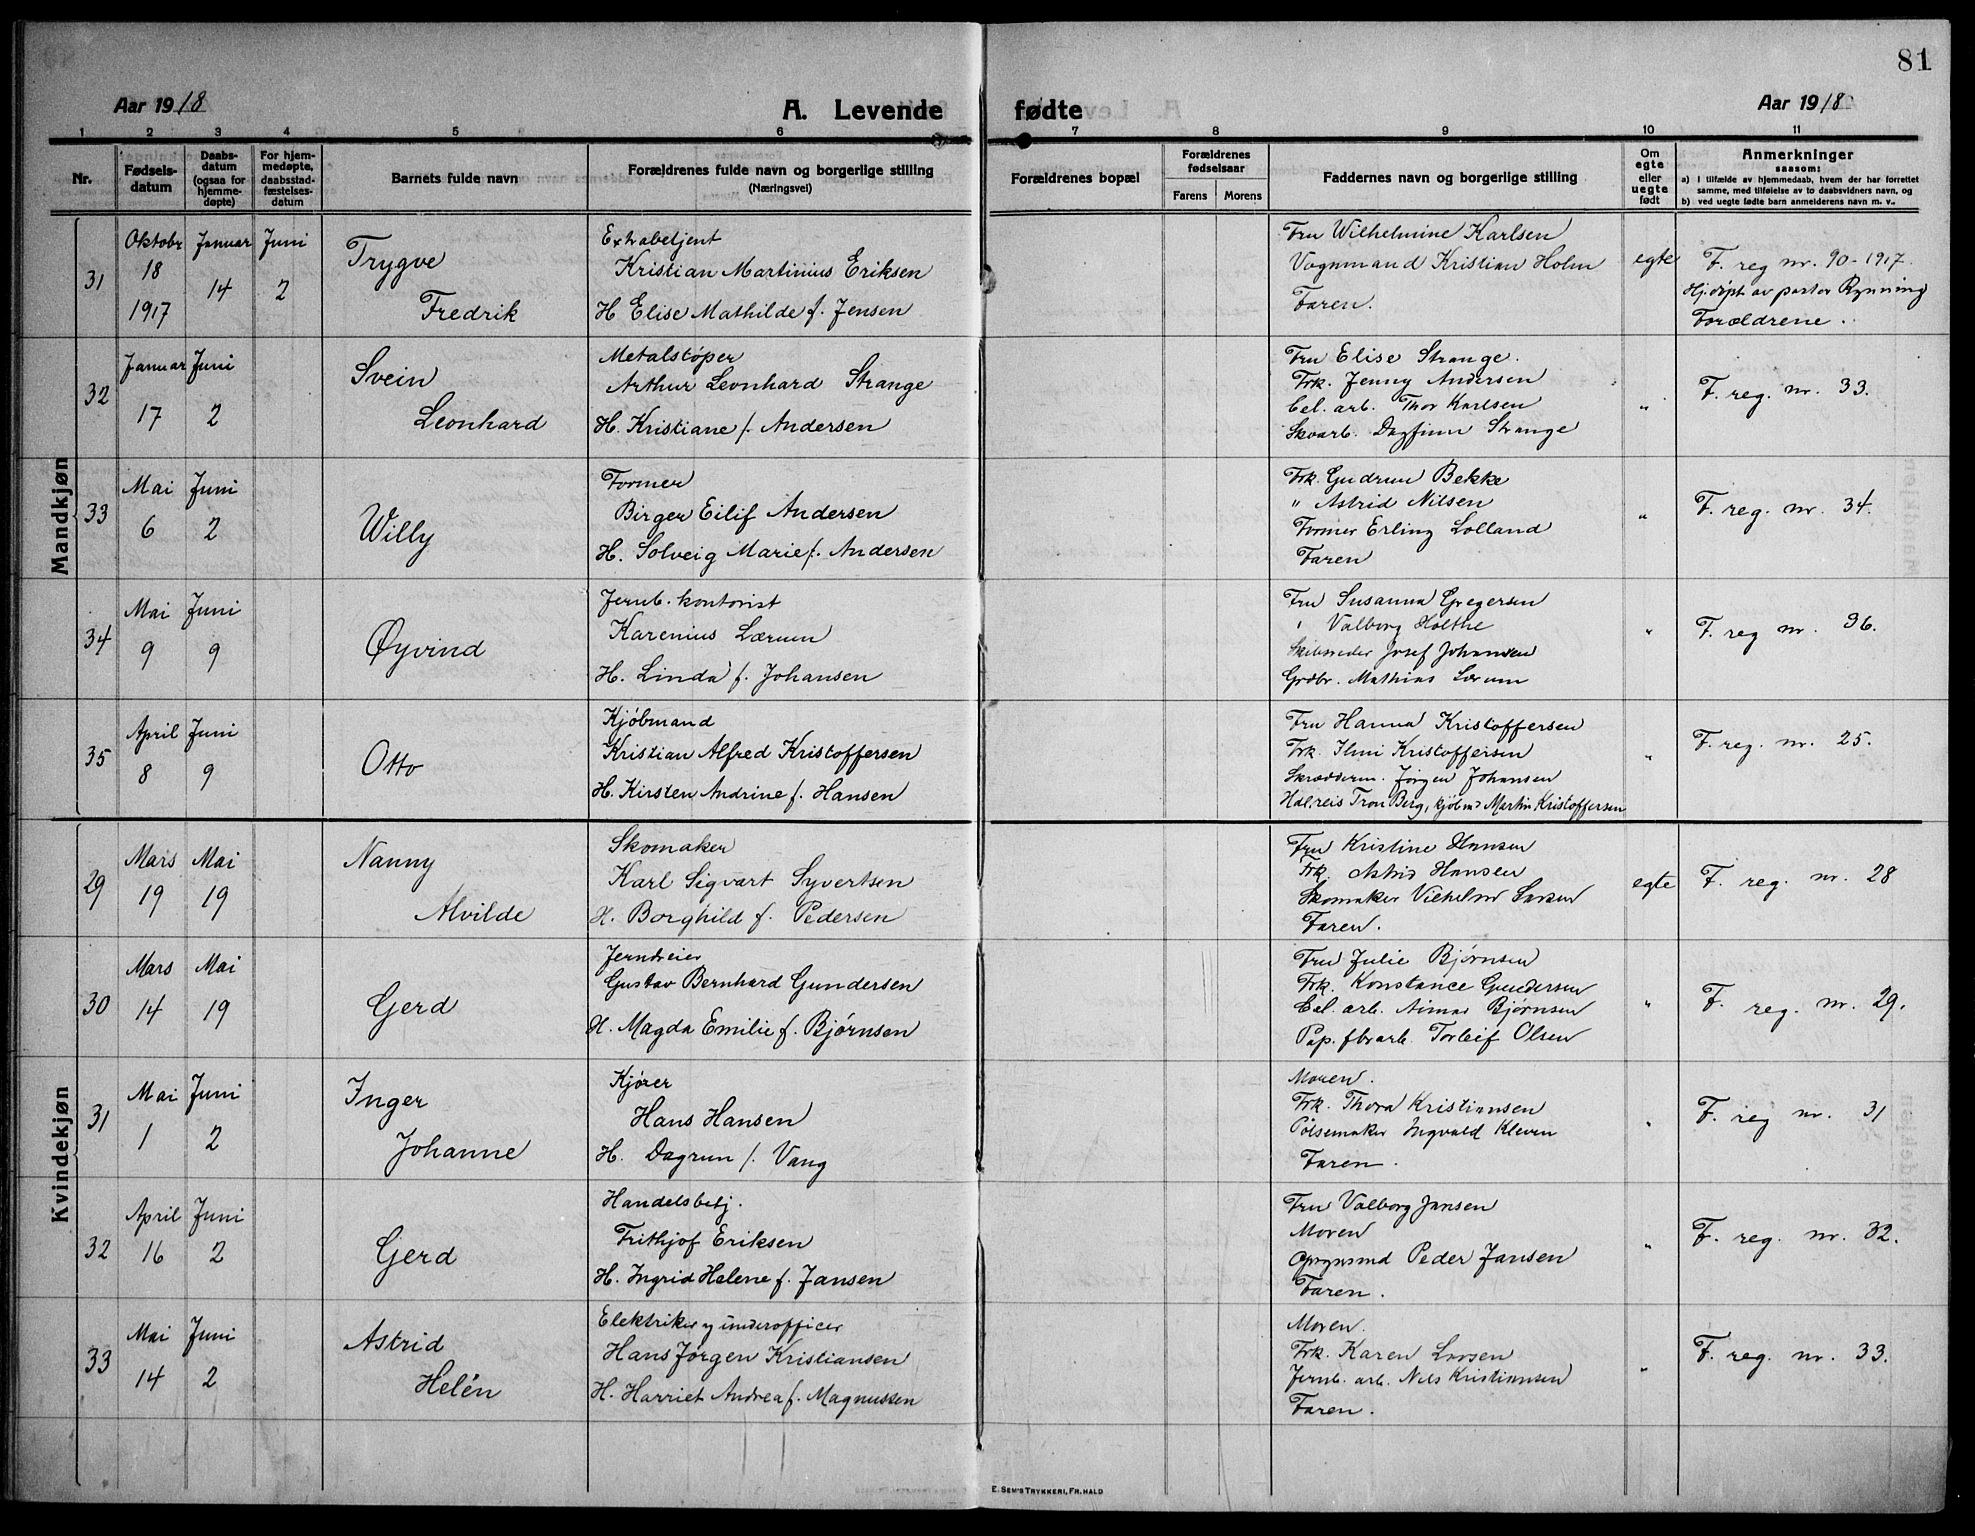 81
Aar 1918
A. Levende fødte
Aar 1918
1 2 3 4 5 6 7 8 9 10 11
Nr.
Fødsels-
datum
Daabs-
datum
(ogsaa for
hjemme-
døpte)
For hjem-
medøpte,
daabsstad-
fæstelses-
datum
Barnets fulde navn
Forældrenes fulde navn og borgerlige stilling
(Næringsvei)
Forældrenes bopæl
Forældrenes
fødselsaar
Farens Morens
Faddernes navn og borgerlige stilling
Om
egte
eller
uegte
født
Anmerkninger
saasom:
a) I tilfælde av hjemmedaab, hvem der har forrettet
samme, med tilføielse av to daabsvidners navn, og
b) ved uegte fødte barn anmelderens navn m. v.
Mandkjøn
31
Oktobr
18
1917
Januar
14
Juni
2
Trygve
Fredrik
Extrabetjent
Kristian Martinius Eriksen
H Elise Mathilde f. Jensen
Fru Wilhelmine Karlsen
Vognmand Kristian Holm
Faren.
egte
F. reg nr. 90-1917.
Hj.døpt av pastor Rynning
Forældrene.
32
Januar
17
Juni
2
Svein
Leonhard
Metalstøper
Arthur Leonhard Strange
H. Kristiane f. Andersen
Fru Elise Strange.
Frk. Jenny Andersen
Cel. arb. Thor Karlsen
Skoarb. Dagfinn Strange
"
F. reg. nr. 33.
33
Mai
6
Juni
2
Willy
Former
Birger Eilif Andersen
H. Solveig Marie f. Andersen
Frk. Gudrun Bekke
" Astrid Nilsen
Former Erling Lolland
Faren
"
F. reg. nr. 34.
34
Mai
9
Juni
9
Øyvind
Jernb. kontorist
Karenius Lærum
H. Linda f. Johansen
Fru Susanna Gregersen
" Valborg Holthe
Skibsreder Josef Johansen
Grdbr. Mathias Lærum
"
F. reg nr. 36.
35
April
8
Juni
9
Otto
Kjøbmand
Kristian Alfred Kristoffersen
H. Kirsten Andrine f. Hansen
Fru Hanna Kristoffersen
Frk. Ilmi Kristoffersen
Skrædderm. Jørgen Johansen
Hdlreis Tron Berg, kjøbmd Martin Kristoffersen
"
F. reg. nr. 25.
Kvindekjøn
29
Mars
19
Mai
19
Nanny
Alvilde
Skomaker
Karl Sigvart Syvertsen
H. Borghild f. Pedersen
Fru Kristine Hansen
Frk. Astrid Hansen
Skomaker Vilhelm Larsen
Faren.
egte
F. reg. nr. 28
30
Mars
14
Mai
19
Gerd
Jerndreier
Gustav Bernhard Gundersen
H. Magda Emilie f. Bjørnsen
Fru Julie Bjørnsen
Frk. Konstance Gundersen
Cel. arb. Aimar Bjørnsen
Pap. fbrarb. Torleif Olsen
"
F. reg. nr. 29.
31
Mai
1
Juni
2
Inger
Johanne
Kjører
Hans Hansen
H. Dagrun f. Vang
Moren.
Frk. Thora Kristiansen
Pølsemaker Ingvald Kleven
Faren.
"
F. reg nr. 31
32
April
16
Juni
2
Gerd
Handelsbetj.
Frithjof Eriksen
H. Ingrid Helene f. Jansen
Fru Valborg Jansen
Moren
Peder Jansen
Faren.
"
F. reg. nr. 32.
33
Mai
14
Juni
2
Astrid
Helén
Elektriker og underofficer
Hans Jørgen Kristiansen
H. Harriet Andrea f. Magnussen
Moren.
Frk. Karen Larsen
Jernb. arb. Nils Kristiansen
Faren.
"
F. reg. nr. 33.
E. SEM'S TRYKKERI, FR.HALD